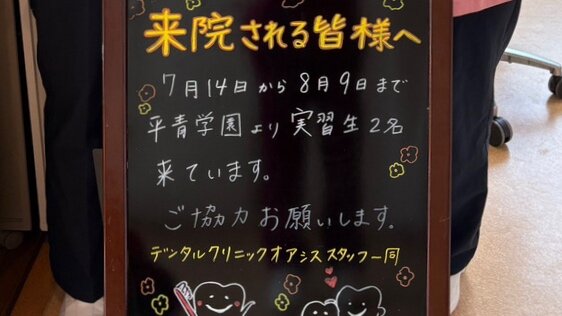 来院される皆様へ
7月14日から8月9日まで
平青学園より実習生2名
来ています。
ご協力お願いします。
デンタルクリニックオアシススタッフ一同